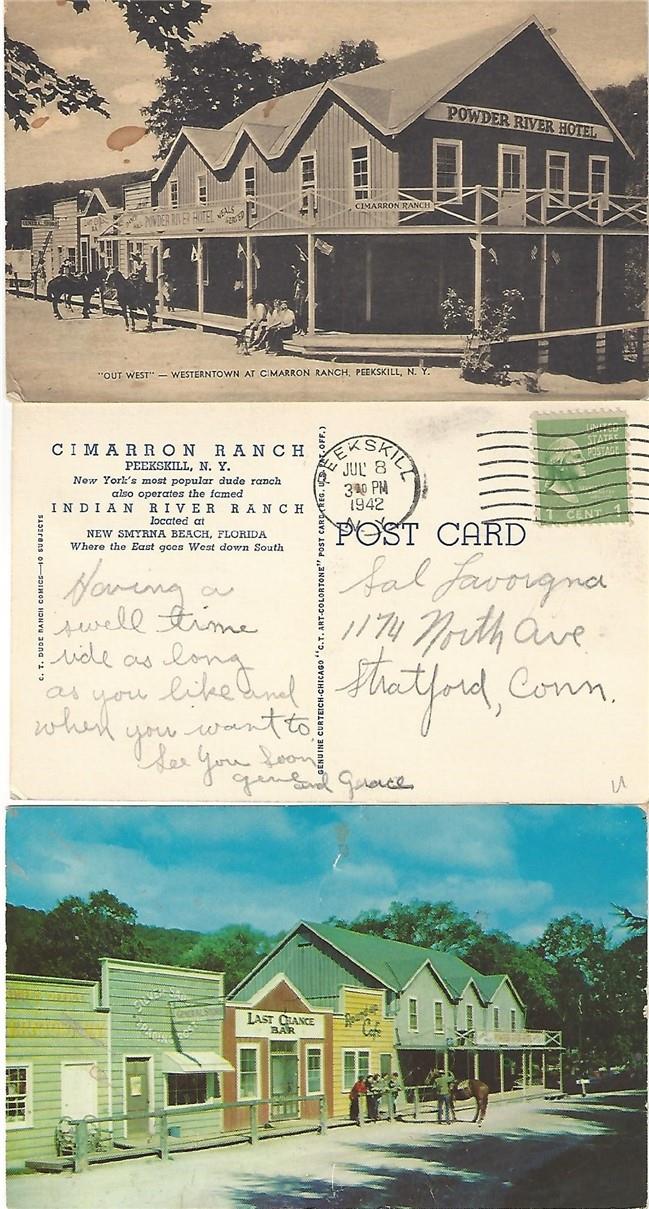 POWDER RIVER HOTEL
CIMARRON RANCH
POWDER RIVER HOTEL
MEALS SERVED
"OUT WEST" — WESTERNTOWN AT CIMARRON RANCH, PEEKSKILL, N. Y.
CIMARRON RANCH
PEEKSKILL, N. Y.
New York's most popular dude ranch
also operates the famed
INDIAN RIVER RANCH
located at
NEW SMYRNA BEACH, FLORIDA
Where the East goes West down South
C. T. DUDE RANCH COMICS—10 SUBJECTS
Having a
swell time
ride as long
as you like and
when you want to
See You Soon
Gene and Grace
GENUINE CURTEICH-CHICAGO "C. T. ART-COLORTONE" POST CARD (REG. U. S. PAT. OFF.)
PEEKSKILL
JUL 8
PM
1942
N.Y.
UNITED
STATES
POSTAGE
1 CENT 1
POST CARD
Sal Lavorgna
1174 North Ave
Stratford, Conn.
LAST CHANCE
BAR
Cafe